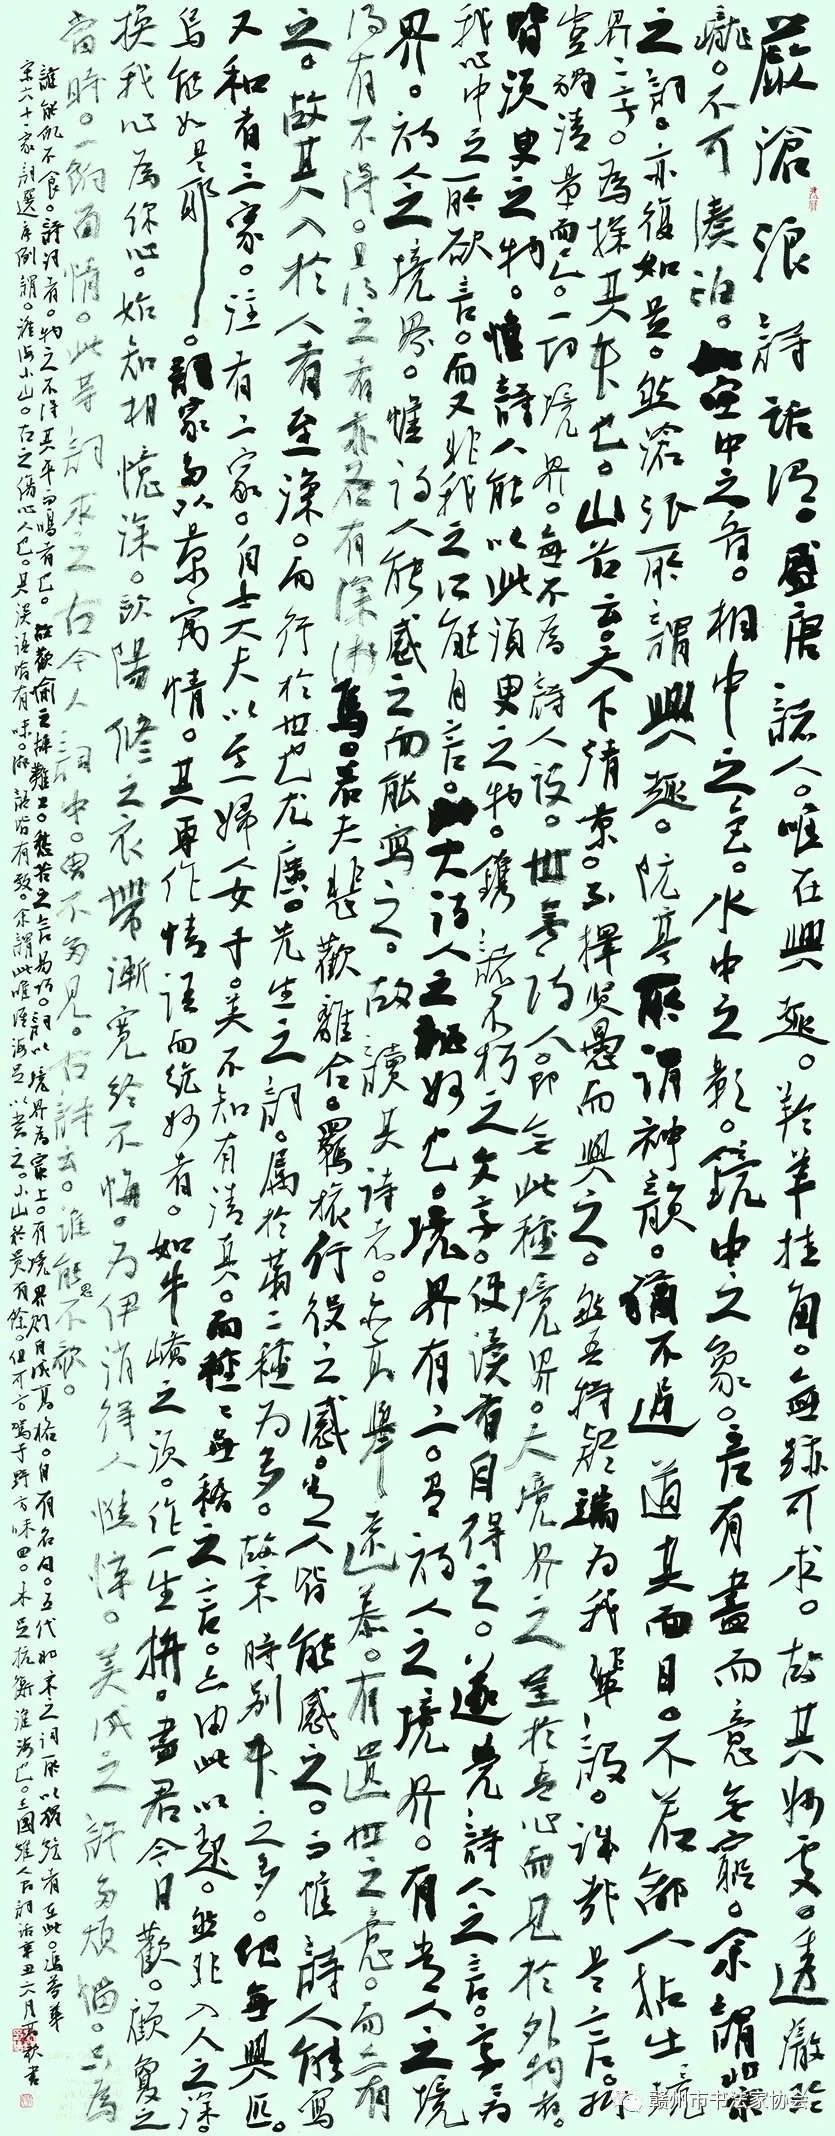 嚴滄浪詩話謂。盛唐諸人。唯在興趣。羚羊挂角。無跡可求。故其妙處。透徹玲
瓏。不可湊泊。如空中之音。相中之色。水中之影。鏡中之象。言有盡而意無窮。余謂北宋以前
之詞。亦復如是。然滄浪所謂興趣。阮亭所謂神韻。猶不過道其面目。不若鄙人拈出境
界二字。為探其本也。山谷云。天下清景。不擇賢愚而與之。然吾特疑端為我輩設。誠哉是言。抑
豈獨清景而已。一切境界。無不為詩人設。世無詩人。即無此種境界。夫境界之呈於吾心而見於外物者。
皆須臾之物。惟詩人能以此須臾之物。鐫諸不朽之文字。使讀者自得之。遂覺詩人之言。字字為
我心中之所欲言。而又非我之所能自言。此大詩人之秘妙也。境界有二。有詩人之境界。有常人之境
界。詩人之境界。惟詩人能感之而能寫之。故讀其詩者。亦高舉遠慕。有遺世之意。而亦有
得有不得。且得之者亦各有深淺焉。若夫悲歡離合。羈旅行役之感。常人皆能感之。而惟詩人能寫
之。故其入於人者至深。而行於世也尤廣。先生之詞。屬於第二種為多。故宋時別本之多。他無與匹。
又和者三家。注者二家。自士大夫以至婦人女子。莫不知有清真。而種種無稽之言。亦由此以起。然非入人之深。
烏能如是耶。詞家多以景寓情。其專作情語而絕妙者。如牛嶠之須作一生拚。盡君今日歡。顧敻之
換我心為你心。始知相憶深。歐陽修之衣帶漸寬終不悔。為伊消得人憔悴。美成之許多煩惱。只為
當時。一餉留情。此等詞求之古今人詞中。曾不多見。古詩云。誰能思不歌。
誰能飢不食。詩詞者。物之不得其平而鳴者也。故歡愉之辭難工。愁苦之言易巧。詞以境界為最上。有境界則自成高格。自有名句。五代北宋之詞所以獨絕者在此。馮夢華
宋六十一家詞選序例謂。淮海小山。古之傷心人也。其淡語皆有味。淺語皆有致。余謂此唯淮海足以當之。小山矜貴有餘。但可方駕子野方回。未足抗衡淮海也。王國維人間詞話辛丑六月
赣州市书法家协会